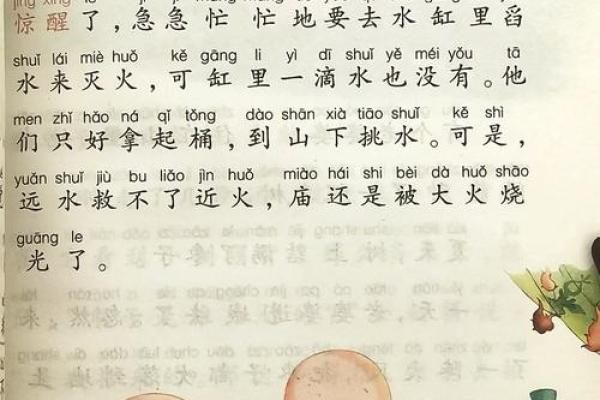 jīng xǐng le
惊醒了，急急忙忙地要去水缸里舀
shuǐ lái miè huǒ kě gāng li yì dī shuǐ yě méi yǒu tā
水来灭火，可缸里一滴水也没有。他
men zhǐ hǎo ná qǐ tǒng dào shān xià tiāo shuǐ kě shì
们只好拿起桶，到山下挑水。可是，
yuǎn shuǐ jiù bu liǎo jìn huǒ miào hái shi bèi dà huǒ shāo
远水救不了近火，庙还是被大火烧
guāng le
光了。